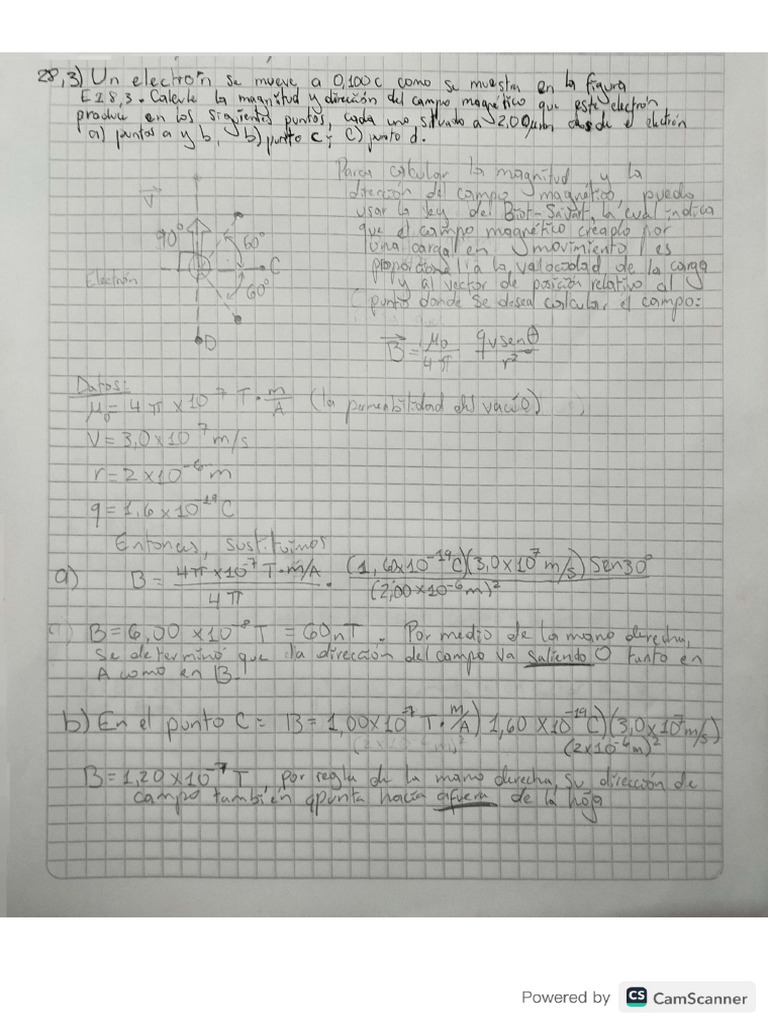 28,3) Un electrón se mueve a 0,100c como se muestra en la figura
E28,3. Calcule la magnitud y dirección del campo magnético que este electrón
produce en los siguientes puntos, cada uno situado a 2,00μm desde el electrón
a) puntos a y b, b) punto c; c) punto d.
Para calcular la magnitud y la
dirección del campo magnético, puedo
usar la ley del Biot-Savart, la cual indica
que el campo magnético creado por
una carga en movimiento es
proporcional a la velocidad de la carga
y al vector de posición relativo al
punto donde se desea calcular el campo:
V
90°
60°
C
Electrón
60°
D
B = μ0/4π qvsenθ/r²
Datos:
μ0 = 4π×10⁻⁷ T·m/A (la permeabilidad del vacío)
V = 3,0×10⁷ m/s
r = 2×10⁻⁶ m
q = 1,6×10⁻¹⁹ C
Entonces, sustituimos
a) B = 4π×10⁻⁷ T·m/A / 4π · (1,60×10⁻¹⁹C)(3,0×10⁷ m/s) Sen30° / (2,00×10⁻⁶m)²
B = 6,00×10⁻⁸ T = 60nT. Por medio de la mano derecha,
se determinó que la dirección del campo va saliendo O tanto en
A como en B.
b) En el punto C = B = 1,00×10⁻⁷ T·m/A) 1,60×10⁻¹⁹C)(3,0×10⁷m/s) / (2×10⁻⁶m)²
B = 1,20×10⁻⁷ T, por regla de la mano derecha, su dirección de
campo también apunta hacia afuera de la hoja
Powered by CS CamScanner